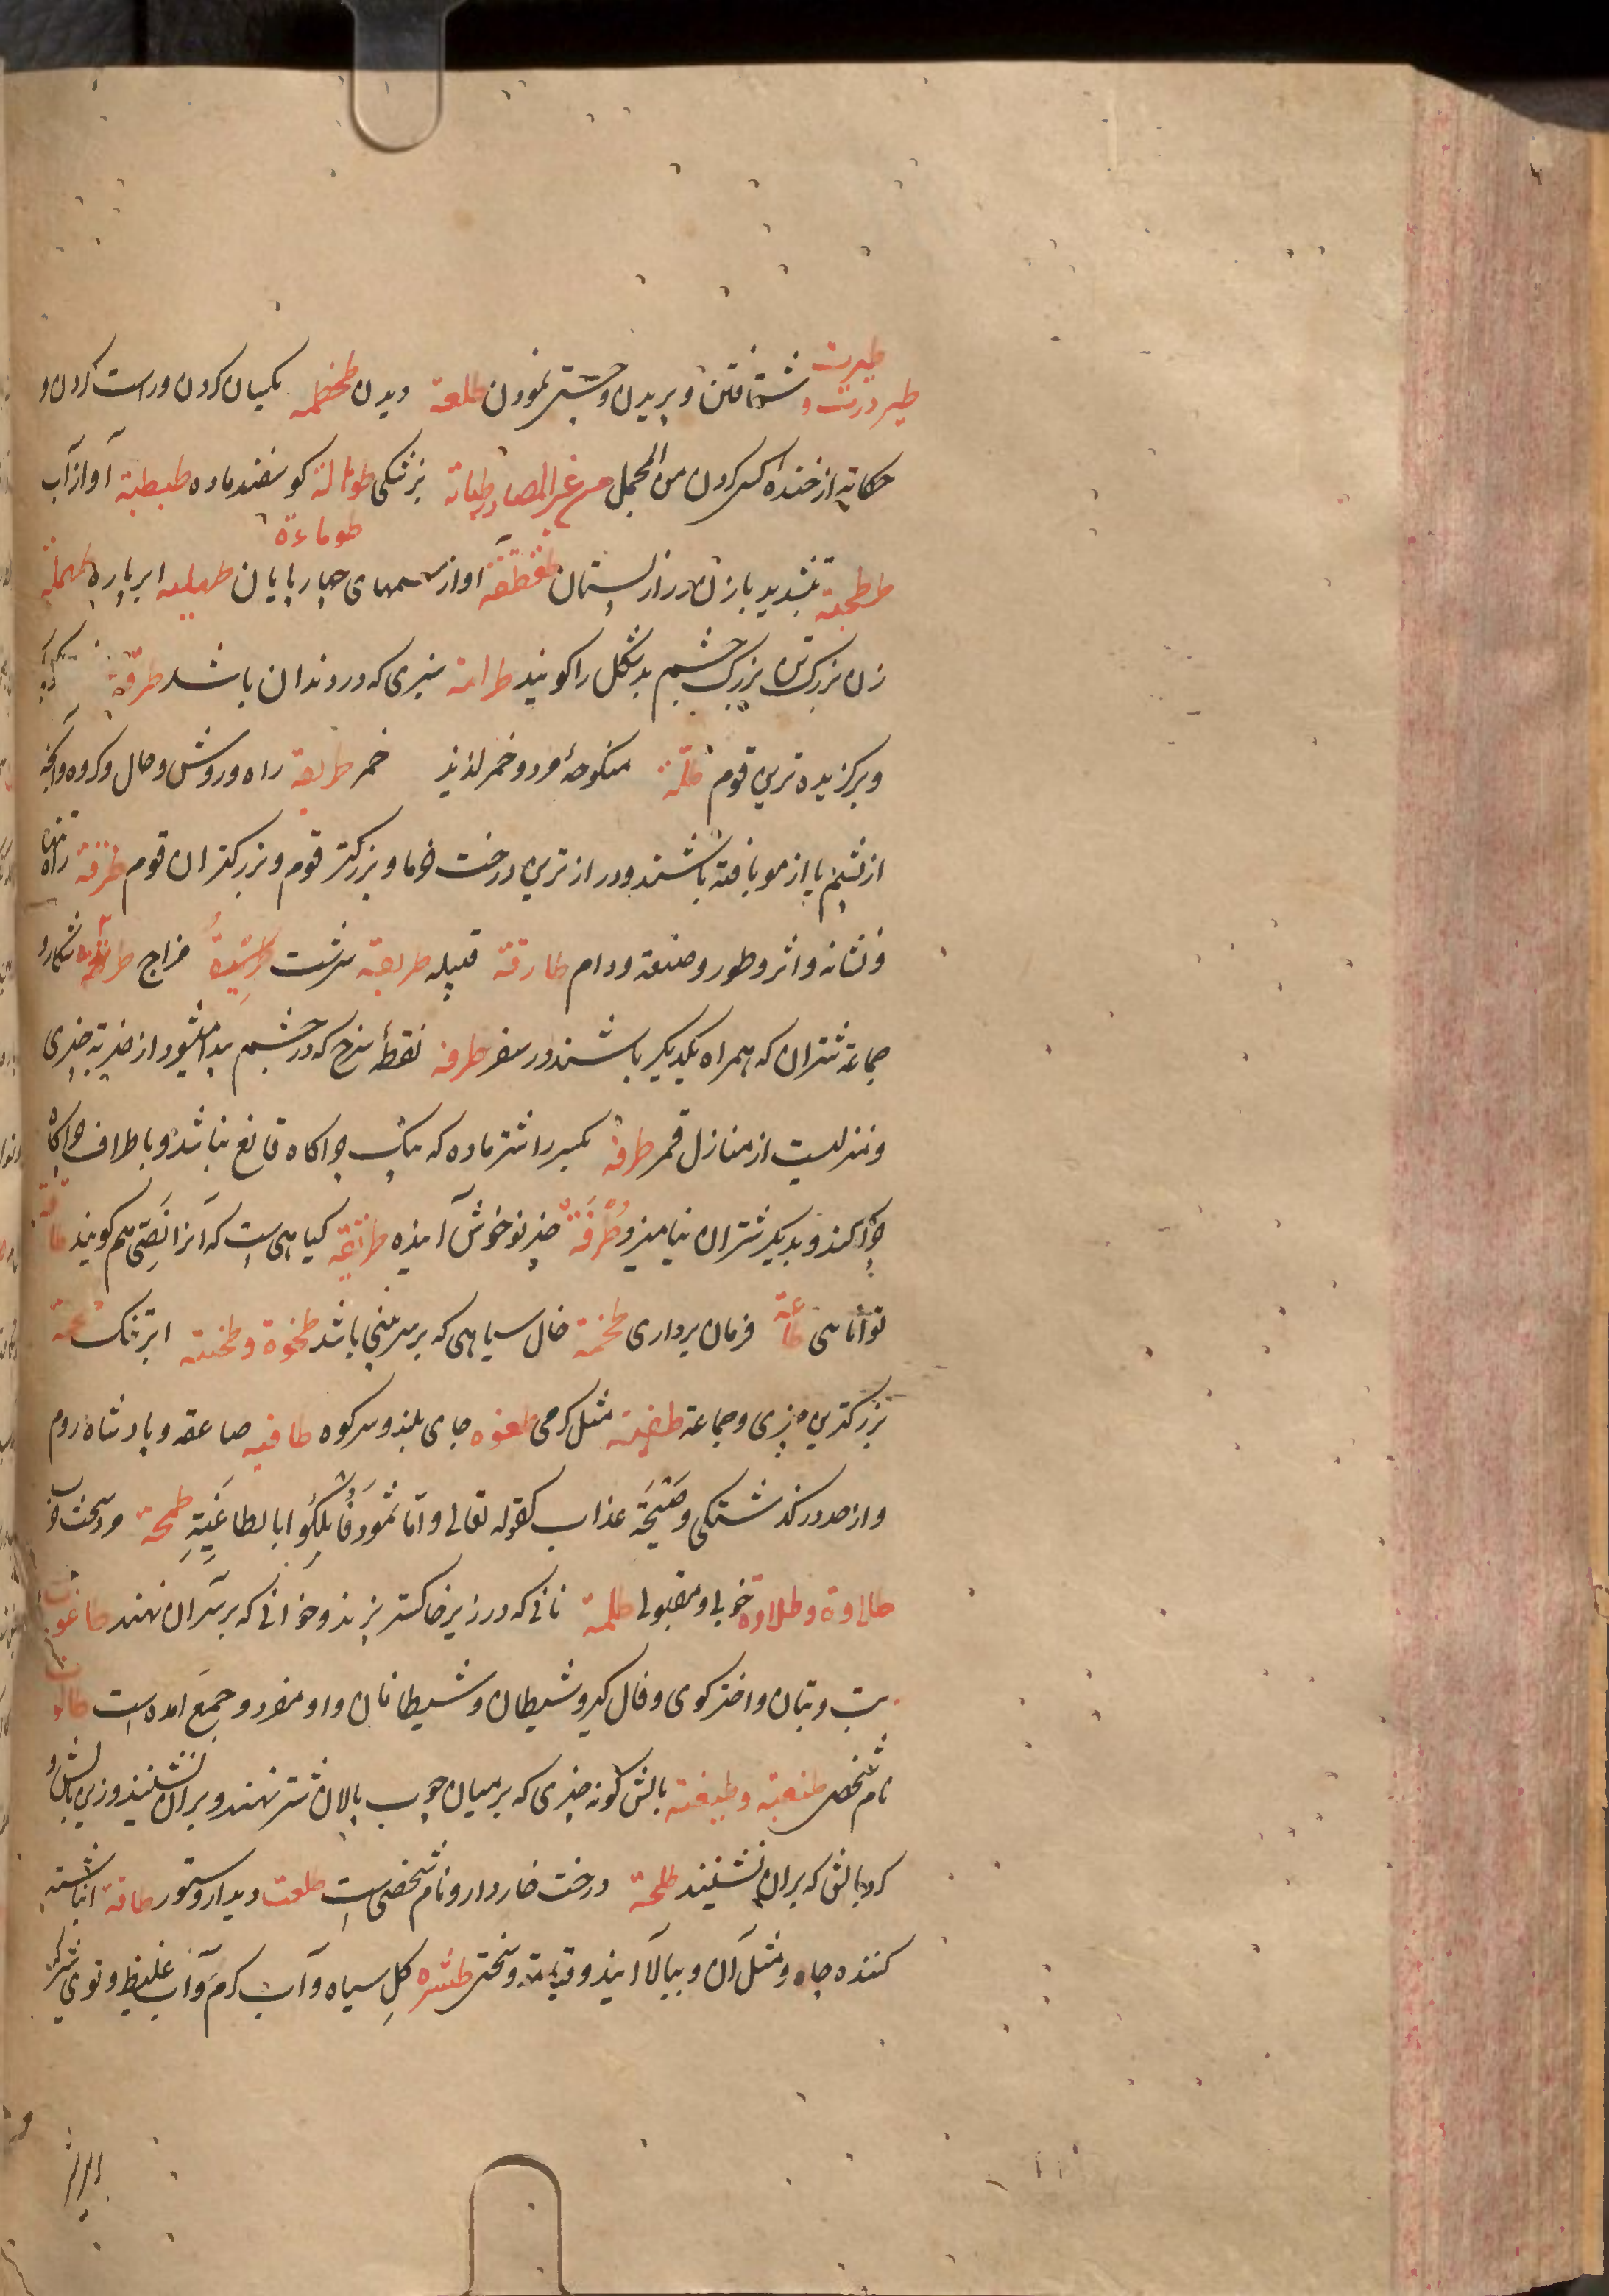 طیرت
طیر درت و شتافتن و پریدن و چستی نمودن طلعة دیدن طخطمه یکسان کردن و راست کردن و
حکایة از خنده کس کردن من المجمل من غیر المصادر طبانة بزرنکی طوبالة کوسفند ماده طبطبة آواز آب
طوماءة
طرطبة بتشدید با زن دراز پستان طقطقه آواز سمهای چهارپایان طهلیه ابر پاره طهملة
زن بزرک تن بزرک چشم بدشکل را کویند طرامة سبزی که در دندان باشد طرقة
و برکزیده ترین قوم طلة منکوحهٔ مرد و خمر لذیذ خمر طریقة راه و روش و حال و کروه و آنچه
از پشم یا از مو بافته باشند و درازترین درخت خرما و بزرکتر قوم و بزرکتران قوم طرقة راه
و نشانه و اثر و طور و صنعة و دام طارقة قبیله طریقة سرشت مزاج شکار و
جماعة شتران که همراه یکدیکر باشند در سفر طرفه نقطهٔ سرخ که در چشم پیدا میشود از ضربة چیزی
و منزلیست از منازل قمر طرفة بکسر را شتر ماده که بیک چراکاه قانع نباشد و باطراف چراکاه
چرا کند و بدیکر شتران نیامیزد و طُرْفَةٌ چیز نو خوش آینده طریفة کیاهی است که آنرا نصی هم کویند طاقة
توانائی طاعة فرمان برداری طخمة خال سیاهی که بر سر بینی باشد طخوة و طخیة ابر تنک طحمة
بزرکترین چیزی و جماعة مثل کرمی طغوه جای بلند و سر کوه طاغیه صاعقه و پادشاه روم
و از حد درکذشتکی و صَیْحَة عذاب کقوله تعالی و امّا ثمود فَاُهلِکُوا بالطاغیةِ طمحة
طلاوة و طلاوه خوبی و مقبولی طلمة نانی که در زیر خاکستر پزند و خوانی که بر سر آن نهند طاغوت
بت و بتان و اختر کوی و فال کیر و شیطان و شیطانان و او مفرد و جمع آمده است طالوت
نام شخصی طنفیة و طنفسة بالش کونه چیزی که بر میان چوب پالان شتر نهند و بران نشینند و زیر بالش و
کرد بالش که بران نشینند طلحة درخت خاردار و نام شخصی است طلعت دیدار و ستور طاقة انباشته
کننده چاه و مثل آن و ببالا آینده و قیامة و سختی طثره کلِ سیاه و آب کرم و آب غلیظ و توی شیر